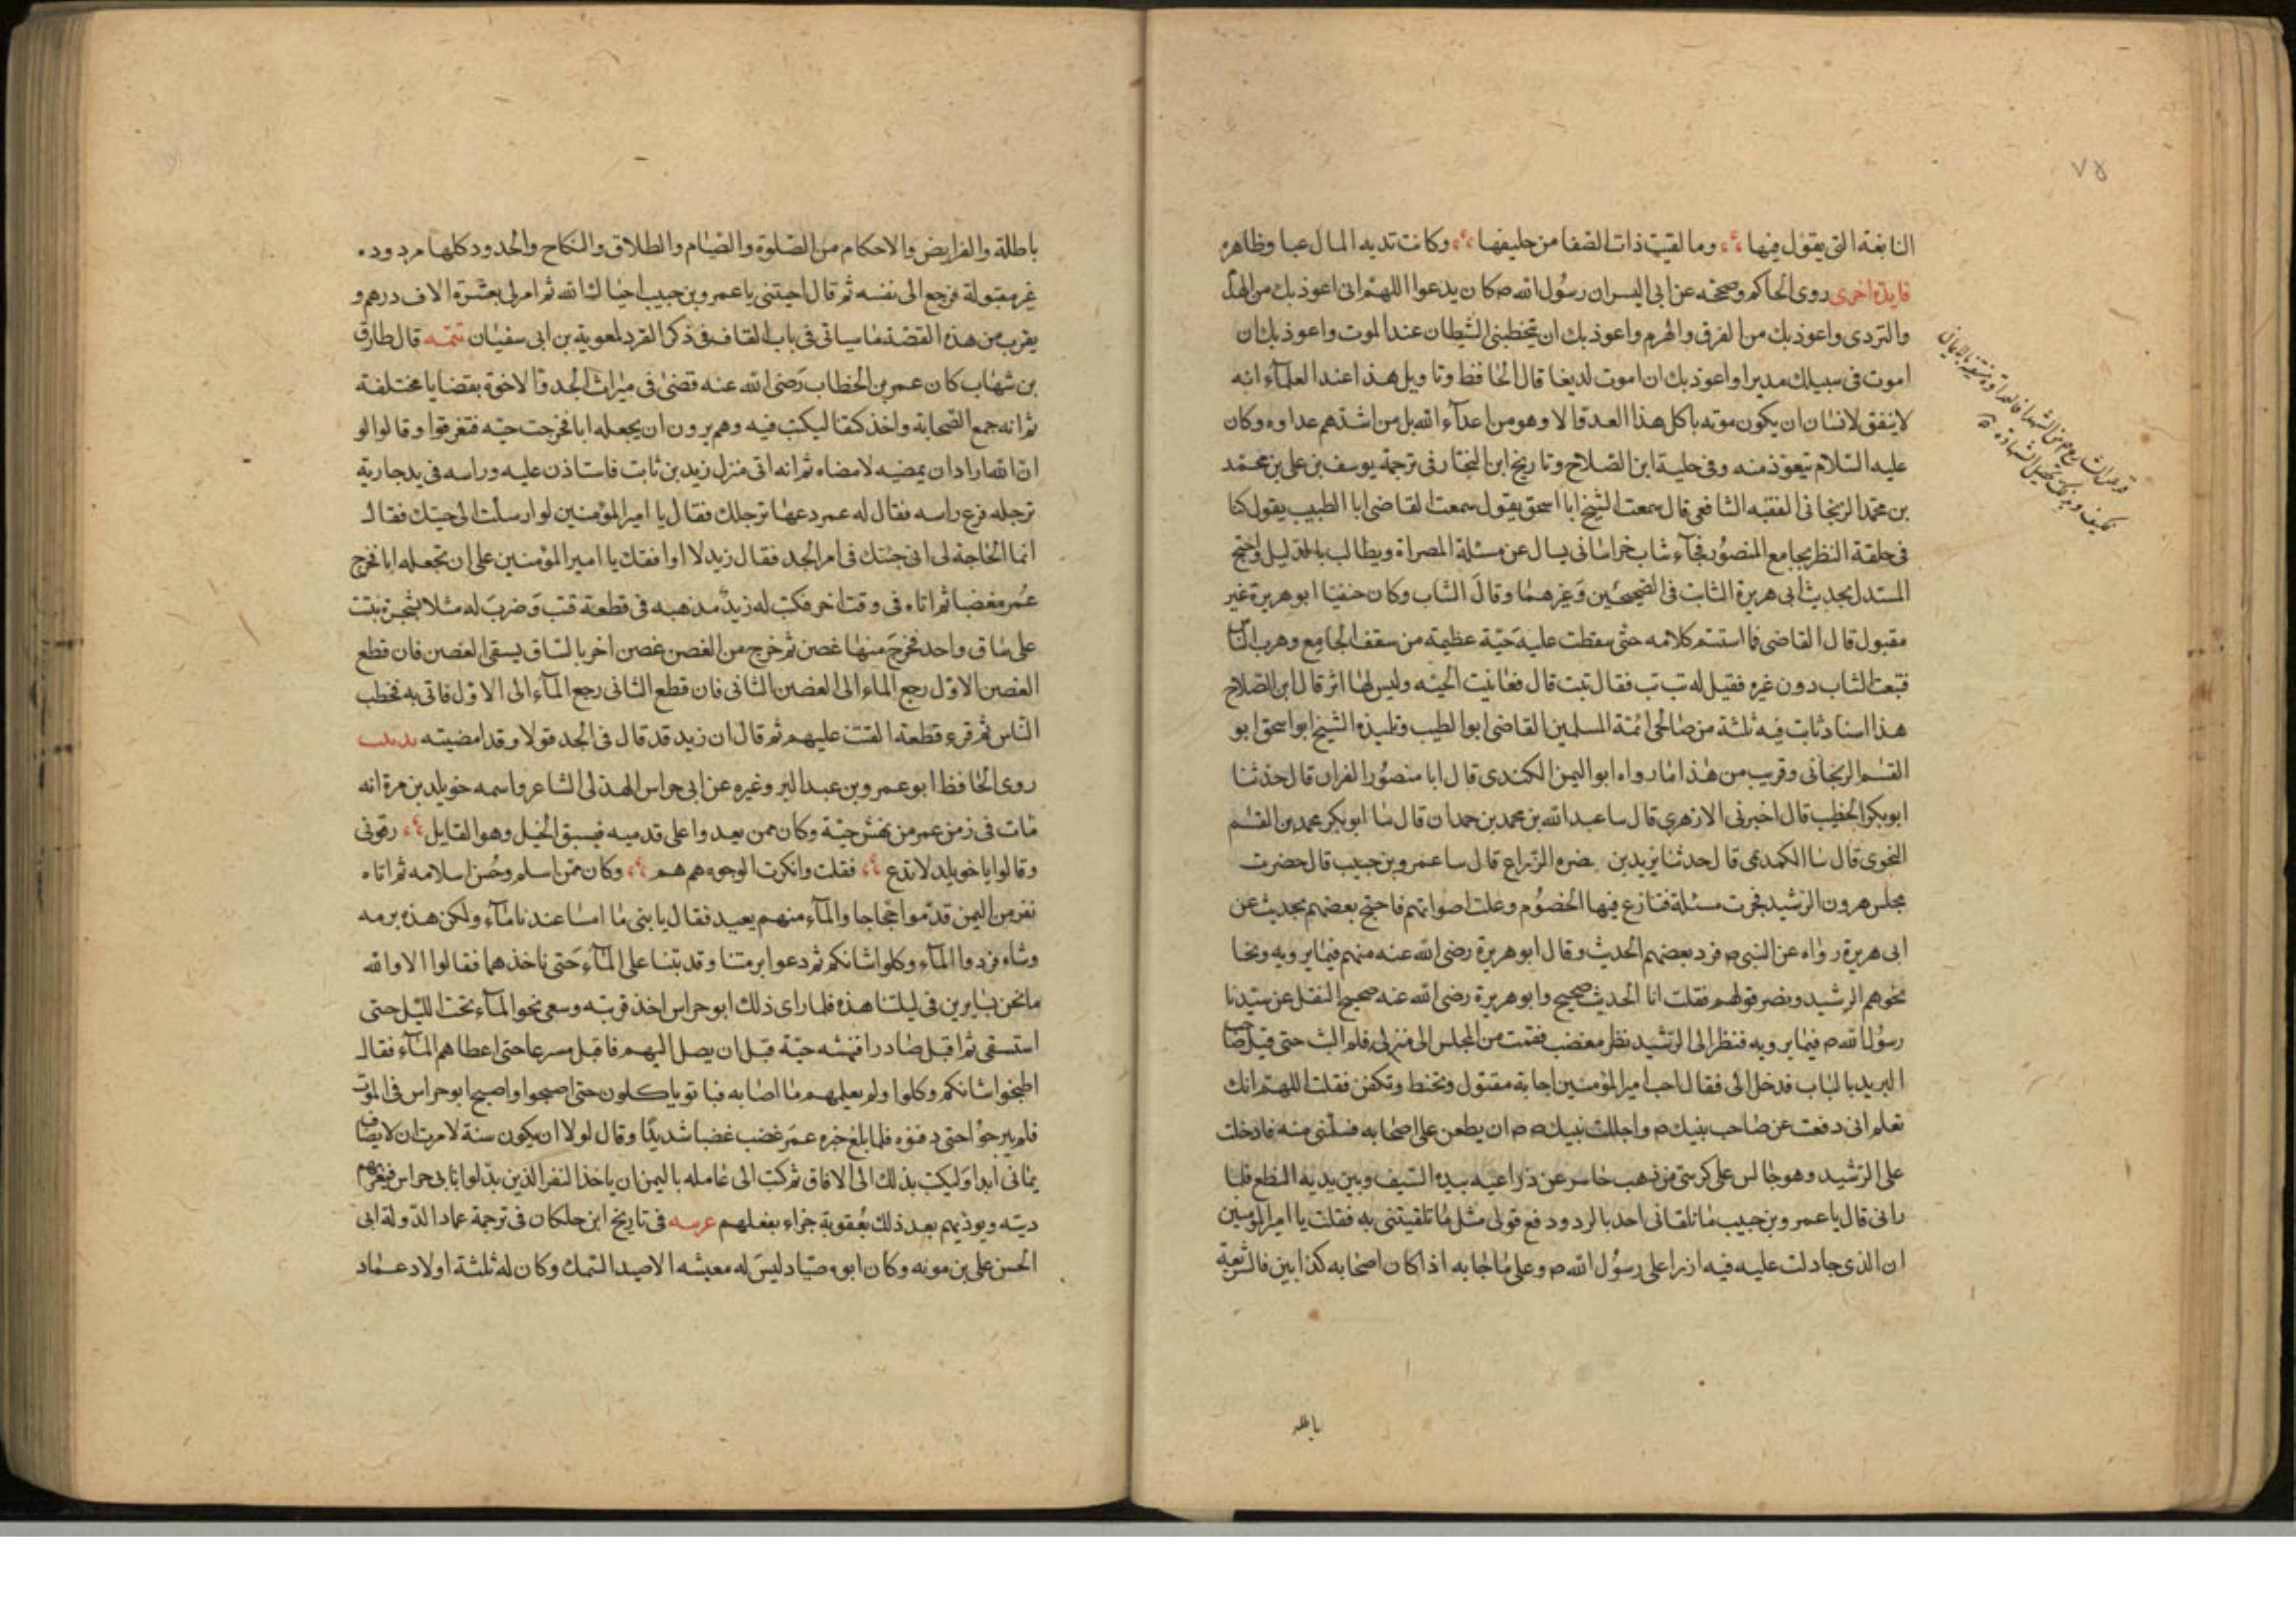 ٧٥
النابغة التي يقول فيها وما لقيت ذات الصفا من حليفها وكانت تديه المال عبا وظاهره
فايدة اخرى روى الحاكم وصححه عن ابى اليسر ان رسول الله ص كان يدعوا اللهم انى اعوذ بك من الهدم
والتردى واعوذ بك من الغرق والهرم واعوذ بك ان يتخطبنى الشيطان عند الموت واعوذ بك ان
اموت فى سبيلك مدبرا واعوذ بك ان اموت لديغا قال الحافظ وتاويل هذا عند العلماء انه
لا يتفق لانسان ان يكون موته باكل هذا العدو الا وهو من اعداء الله بل من اشدهم عداوه وكان
عليه السلام يتعوذ منه وفى حلية ابن الصلاح وتاريخ ابن النجار فى ترجمة يوسف بن على بن محمد
بن محمد الزنجانى الفقيه الشافعى قال سمعت الشيخ ابا اسحق يقول سمعت القاضى ابا الطيب يقول كنا
فى حلقة النظر بجامع المنصور فجاء شاب خراسانى يسال عن مسئلة المصراة ويطالب بالدليل واحتج
المستدل بحديث ابى هريرة الثابت فى الصحيحين وغيرهما وقال الشاب وكان حنفيا ابو هريرة غير
مقبول قال القاضى فما استتم كلامه حتى سقطت عليه حية عظيمة من سقف الجامع وهرب الناس
فتبعت الشاب دون غيره فقيل له تب تب فقال تبت قال فغابت الحيه وليس لها اثر قال ابن الصلاح
هذا اسناد ثابت فيه ثلثة من صالحى ائمة المسلمين القاضى ابو الطيب وتلميذه الشيخ ابو اسحق ابو
القسم الزنجانى وقريب من هذا ما رواه ابو اليمن الكندى قال ابا منصور الفراز قال حدثنا
ابو بكر الخطيب قال اخبرنى الازهرى قال سا عبد الله بن محمد بن حمدان قال سا ابو بكر محمد بن القسم
النحوى قال سا الكديمى قال حدثنا يزيد بن بضره الزراع قال سا عمر وبن حبيب قال حضرت
مجلس هرون الرشيد فجرت مسئلة فتنازع فيها الخصوم وعلت اصواتهم فاحتج بعضهم بحديث عن
ابى هريرة رواه عن النبى ص فرد بعضهم الحديث وقال ابو هريرة رضى الله عنه متهم فيما يرويه ونحا
نحوهم الرشيد ونصر قولهم فقلت انا الحديث صحيح وابو هريرة رضى الله عنه صحيح النقل عن سيدنا
رسول الله ص فيما يرويه فنظر الى الرشيد نظر مغضب فقمت من المجلس الى منزلى فلم البث حتى قيل صاحب
البريد بالباب فدخل الى فقال اجب امير المؤمنين اجابة مقتول وتحنط وتكفن فقلت اللهم انك
تعلم انى دفعت عن صاحب نبيك ص واجللت نبيك ص ان يطعن على اصحابه فسلمنى منه فادخلت
على الرشيد وهو جالس على كرسى من ذهب حاسر عن ذراعيه بيده السيف وبين يديه النطع فلما
رانى قال يا عمر وبن حبيب ما تلقانى احد بالرد ودفع قولى مثل ما تلقيتنى به فقلت يا امير المومنين
ان الذى جادلت عليه فيه ازرا على رسول الله ص وعلى ما جا به اذا كان اصحابه كذابين فالشريعة
باطله
باطلة والفرايض والاحكام من الصلوة والصيام والطلاق والنكاح والحدود كلها مردوده
غير مقبولة فرجع الى نفسه ثم قال احيتنى يا عمر وبن حبيب احياك الله ثم امر لى بعشرة الاف درهم و
يقرب من هذه القصة ما سياتى فى باب القاف فى ذكر القرد لمعوية بن ابى سفيان تتمه قال طارق
بن شهاب كان عمر بن الخطاب رضى الله عنه قضى فى ميراث الجد والاخوة بقضايا مختلفة
ثم انه جمع الصحابة واخذ كتفا ليكتب فيه وهم يرون ان يجعله ابا فخرجت حيه فتفرقوا وقالوا لو
ان الله اراد ان يمضيه لامضاه ثم انه اتى منزل زيد بن ثابت فاستاذن عليه وراسه فى يد جارية
ترجله فنزع راسه فقال له عمر دعها ترجلك فقال يا امير المؤمنين لو ارسلت الى جيتك فقال
انما الحاجة لى انى جئتك فى امر الجد فقال زيد لا اوافقك يا امير المؤمنين على ان نجعله ابا فخرج
عمر مغضبا ثم اتاه فى وقت اخر فكتب له زيد مذهبه فى قطعة قتب وضرب له مثلا بشجرة نبتت
على ساق واحد فخرج منها غصن ثم خرج من الغصن غصن اخر بالساق يسقى الغصن فان قطع
الغصن الاول رجع الماء الى الغصن الثانى فان قطع الثانى رجع الماء الى الاول فاتى به فخطب
الناس ثم قرء قطعة القتب عليهم ثم قال ان زيد قد قال فى الجد قولا وقد امضيته
روى الحافظ ابو عمر وبن عبد البر وغيره عن ابى حراس الهذلى الشاعر واسمه خويلد بن مرة انه
مات فى زمن عمر من نهش حية وكان ممن يعدوا على قدميه فيسبق الخيل وهو القايل رقونى
وقالوا يا خويلد لا تدع فقلت وانكرت الوجوه هم هم وكان ممن اسلم وحسن اسلامه ثم اتاه
نفر من اليمن قدموا حجاجا والماء منهم بعيد فقال يا بنى ما امسا عندنا ماء ولكن هذه برمه
وشاه فردوا الماء وكلوا شاتكم ثم دعوا برمتنا وقد بتنا على الماء حتى ناخذهما فقالوا لا والله
ما نحن بسايرين فى ليلتنا هذه فلما راى ذلك ابو حراس اخذ قربته وسعى نحو الماء تحت الليل حتى
استسقى ثم اقبل صادرا فنهشه حية قبل ان يصل اليهم فاقبل مسرعا حتى اعطاهم الماء فقال
اطبخوا شاتكم وكلوا ولم يعلمهم ما اصابه فباتو ياكلون حتى اصبحوا واصبح ابو حراس فى الموت
فلم يبرحوا حتى دفنوه فلما بلغ خبره عمر غضب غضبا شديدا وقال لولا ان يكون سنة لامرت ان لا يضاف
يمانى ابدا وليكتب بذلك الى الافاق ثم كتب الى عامله باليمن ان ياخذ النفر الذين نزلوا بابى حراس فيغرمهم
ديته ويوذيهم بعد ذلك بعقوبة جزاء بفعلهم عريبه فى تاريخ ابن خلكان فى ترجمة عماد الدولة ابى
الحسن على بن مونه وكان ابوه صيادا ليس له معيشه الا صيد السمك وكان له ثلثة اولاد عماد